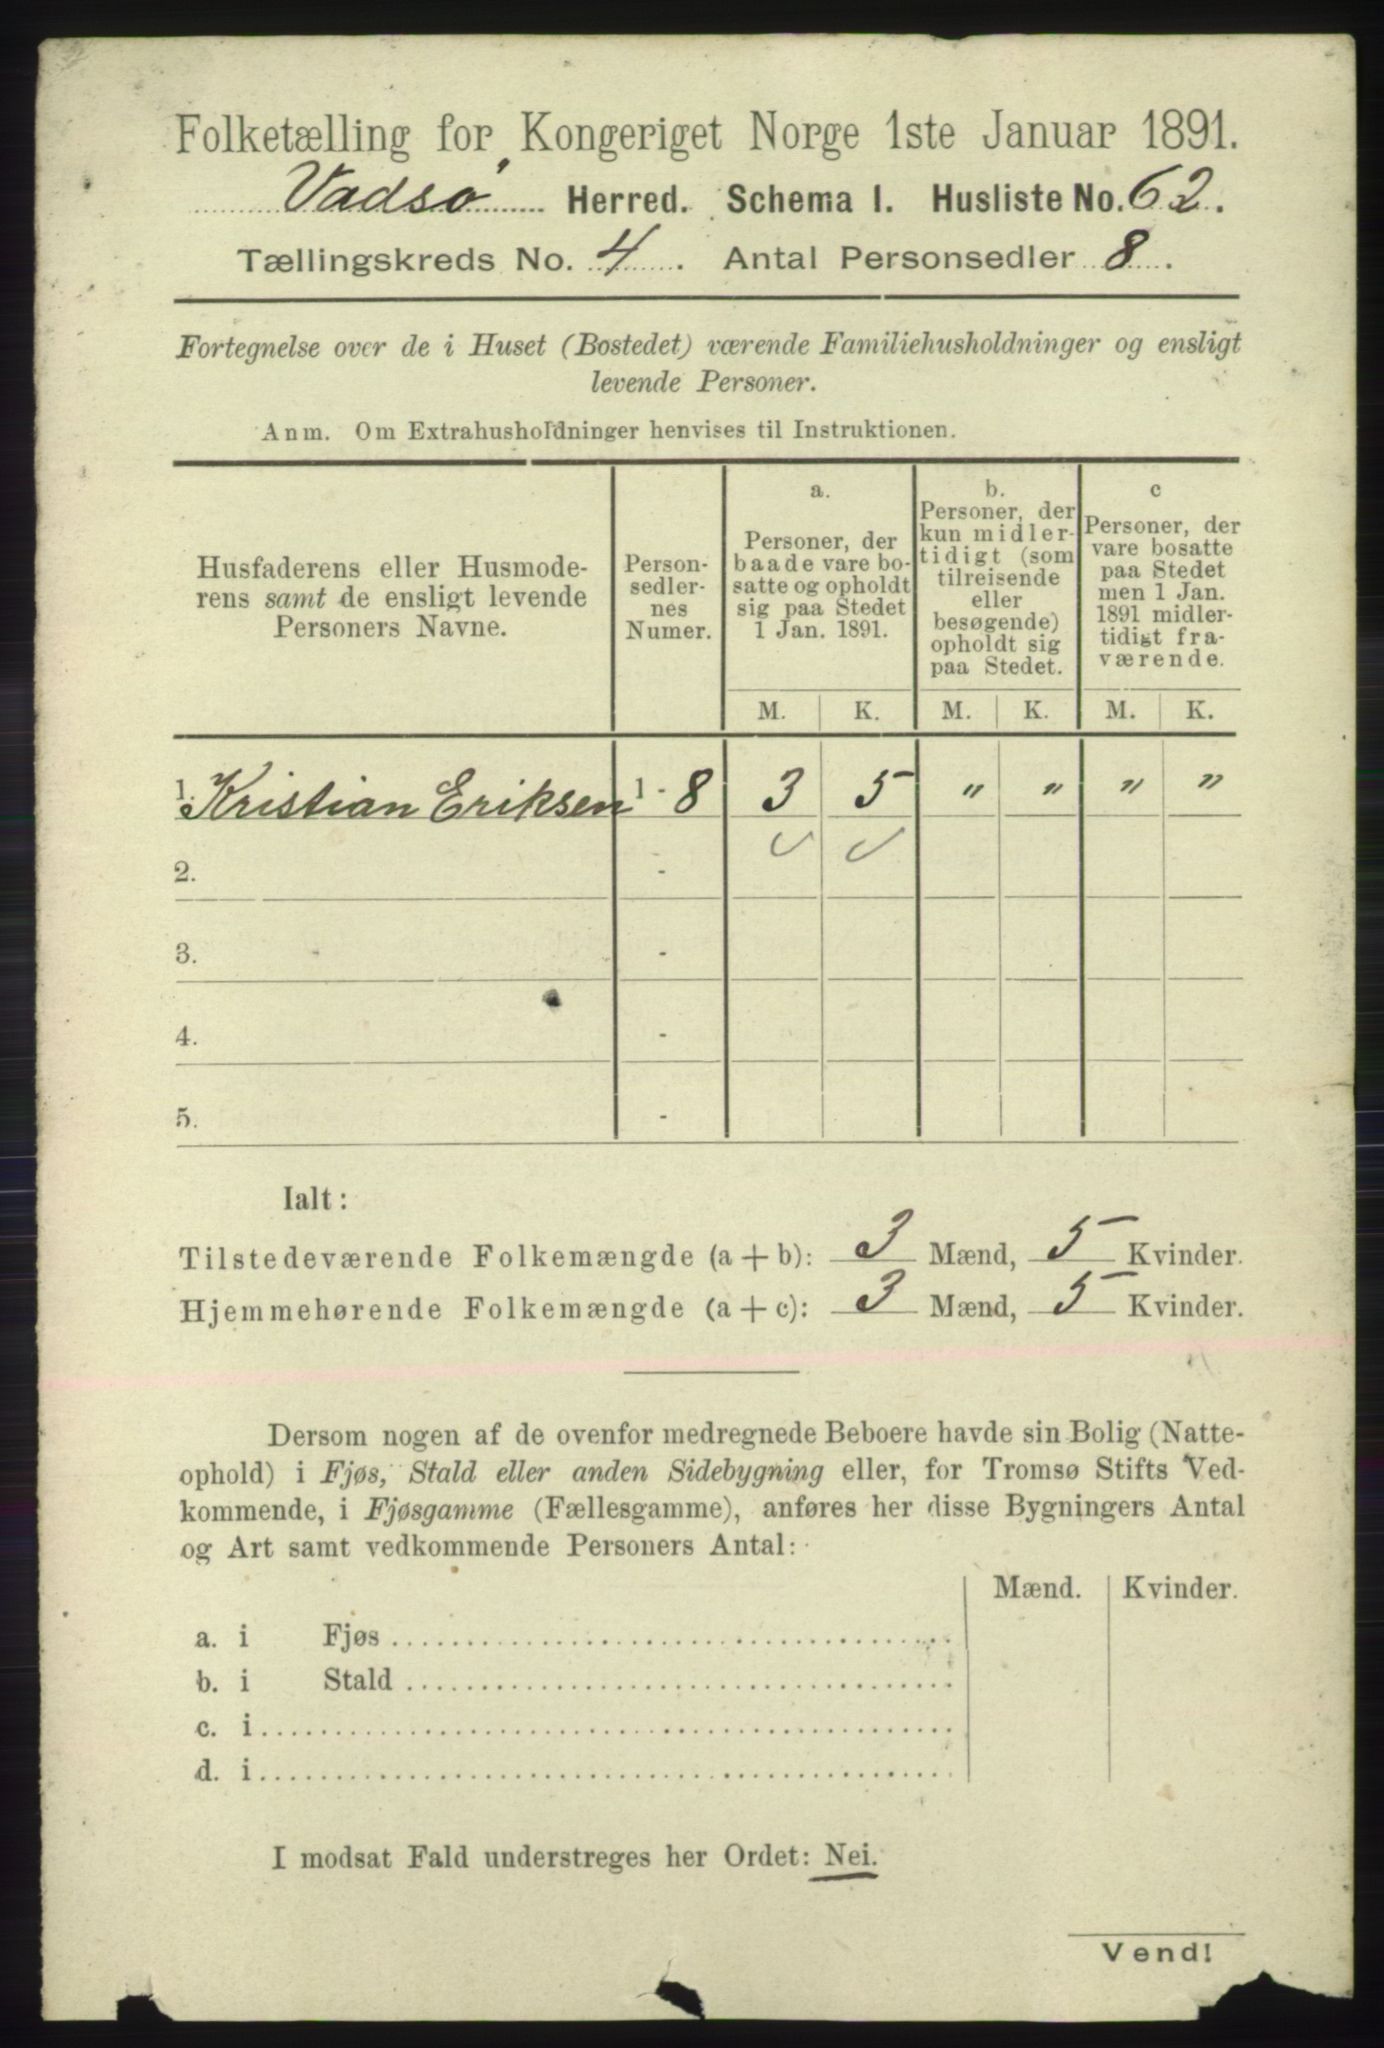 Folketælling for Kongeriget Norge 1ste Januar 1891.
Vadsø Herred. Schema I. Husliste No. 62.
Tællingskreds No. 4. Antal Personsedler 8.
Fortegnelse over de i Huset (Bostedet) værende Familiehusholdninger og ensligt
levende Personer.
Anm. Om Extrahusholdninger henvises til Instruktionen.
Husfaderens eller Husmode-
rens samt de ensligt levende
Personers Navne.
Person-
sedler-
nes
Numer.
a.
Personer, der
baade vare bo-
satte og opholdt
sig paa Stedet
1 Jan. 1891.
b.
Personer, der
kun midler-
tidigt (som
tilreisende
eller
besøgende)
opholdt sig
paa Stedet.
c
Personer, der
vare bosatte
paa Stedet
men 1 Jan.
1891 midler-
tidigt fra-
værende.
M. K. M. K. M. K.
1. Kristian Eriksen 1 - 8 3 5 „ „ „ „
2. -
3. -
4. -
5. -
Ialt:
Tilstedeværende Folkemængde (a + b): 3 Mænd, 5 Kvinder.
Hjemmehørende Folkemængde (a + c): 3 Mænd, 5 Kvinder.
Dersom nogen af de ovenfor medregnede Beboere havde sin Bolig (Natte-
ophold) i Fjøs, Stald eller anden Sidebygning eller, for Tromsø Stifts Ved-
kommende, i Fjøsgamme (Fællesgamme), anføres her disse Bygningers Antal
og Art samt vedkommende Personers Antal:
Mænd. Kvinder.
a. i Fjøs
b. i Stald
c. i
d. i
I modsat Fald understreges her Ordet: Nei.
Vend!